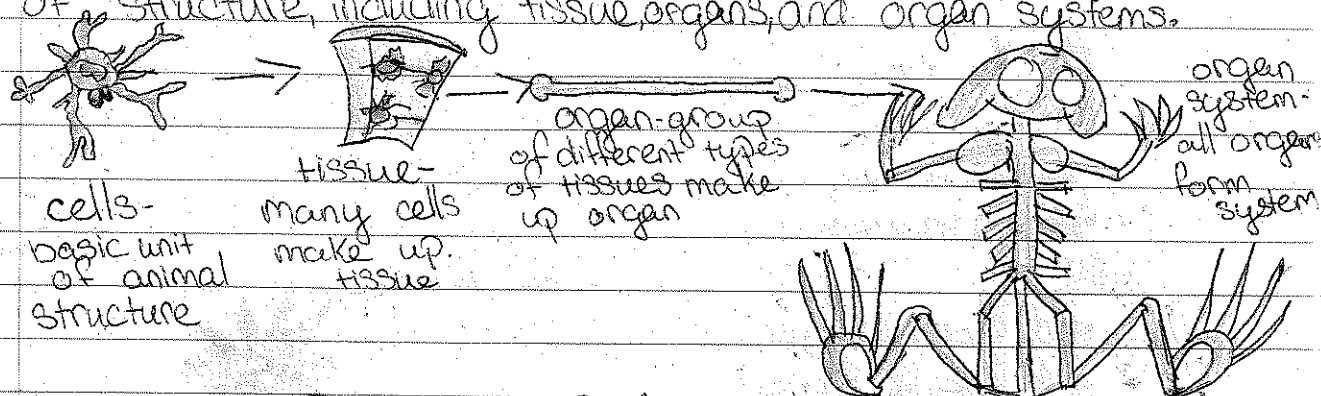 of structure, including tissue, organs, and organ systems.
cells-
basic unit
of animal
structure
tissue-
many cells
make up.
tissue
organ-group
of different types
of tissues make
up organ
organ
system-
all organs
form
system